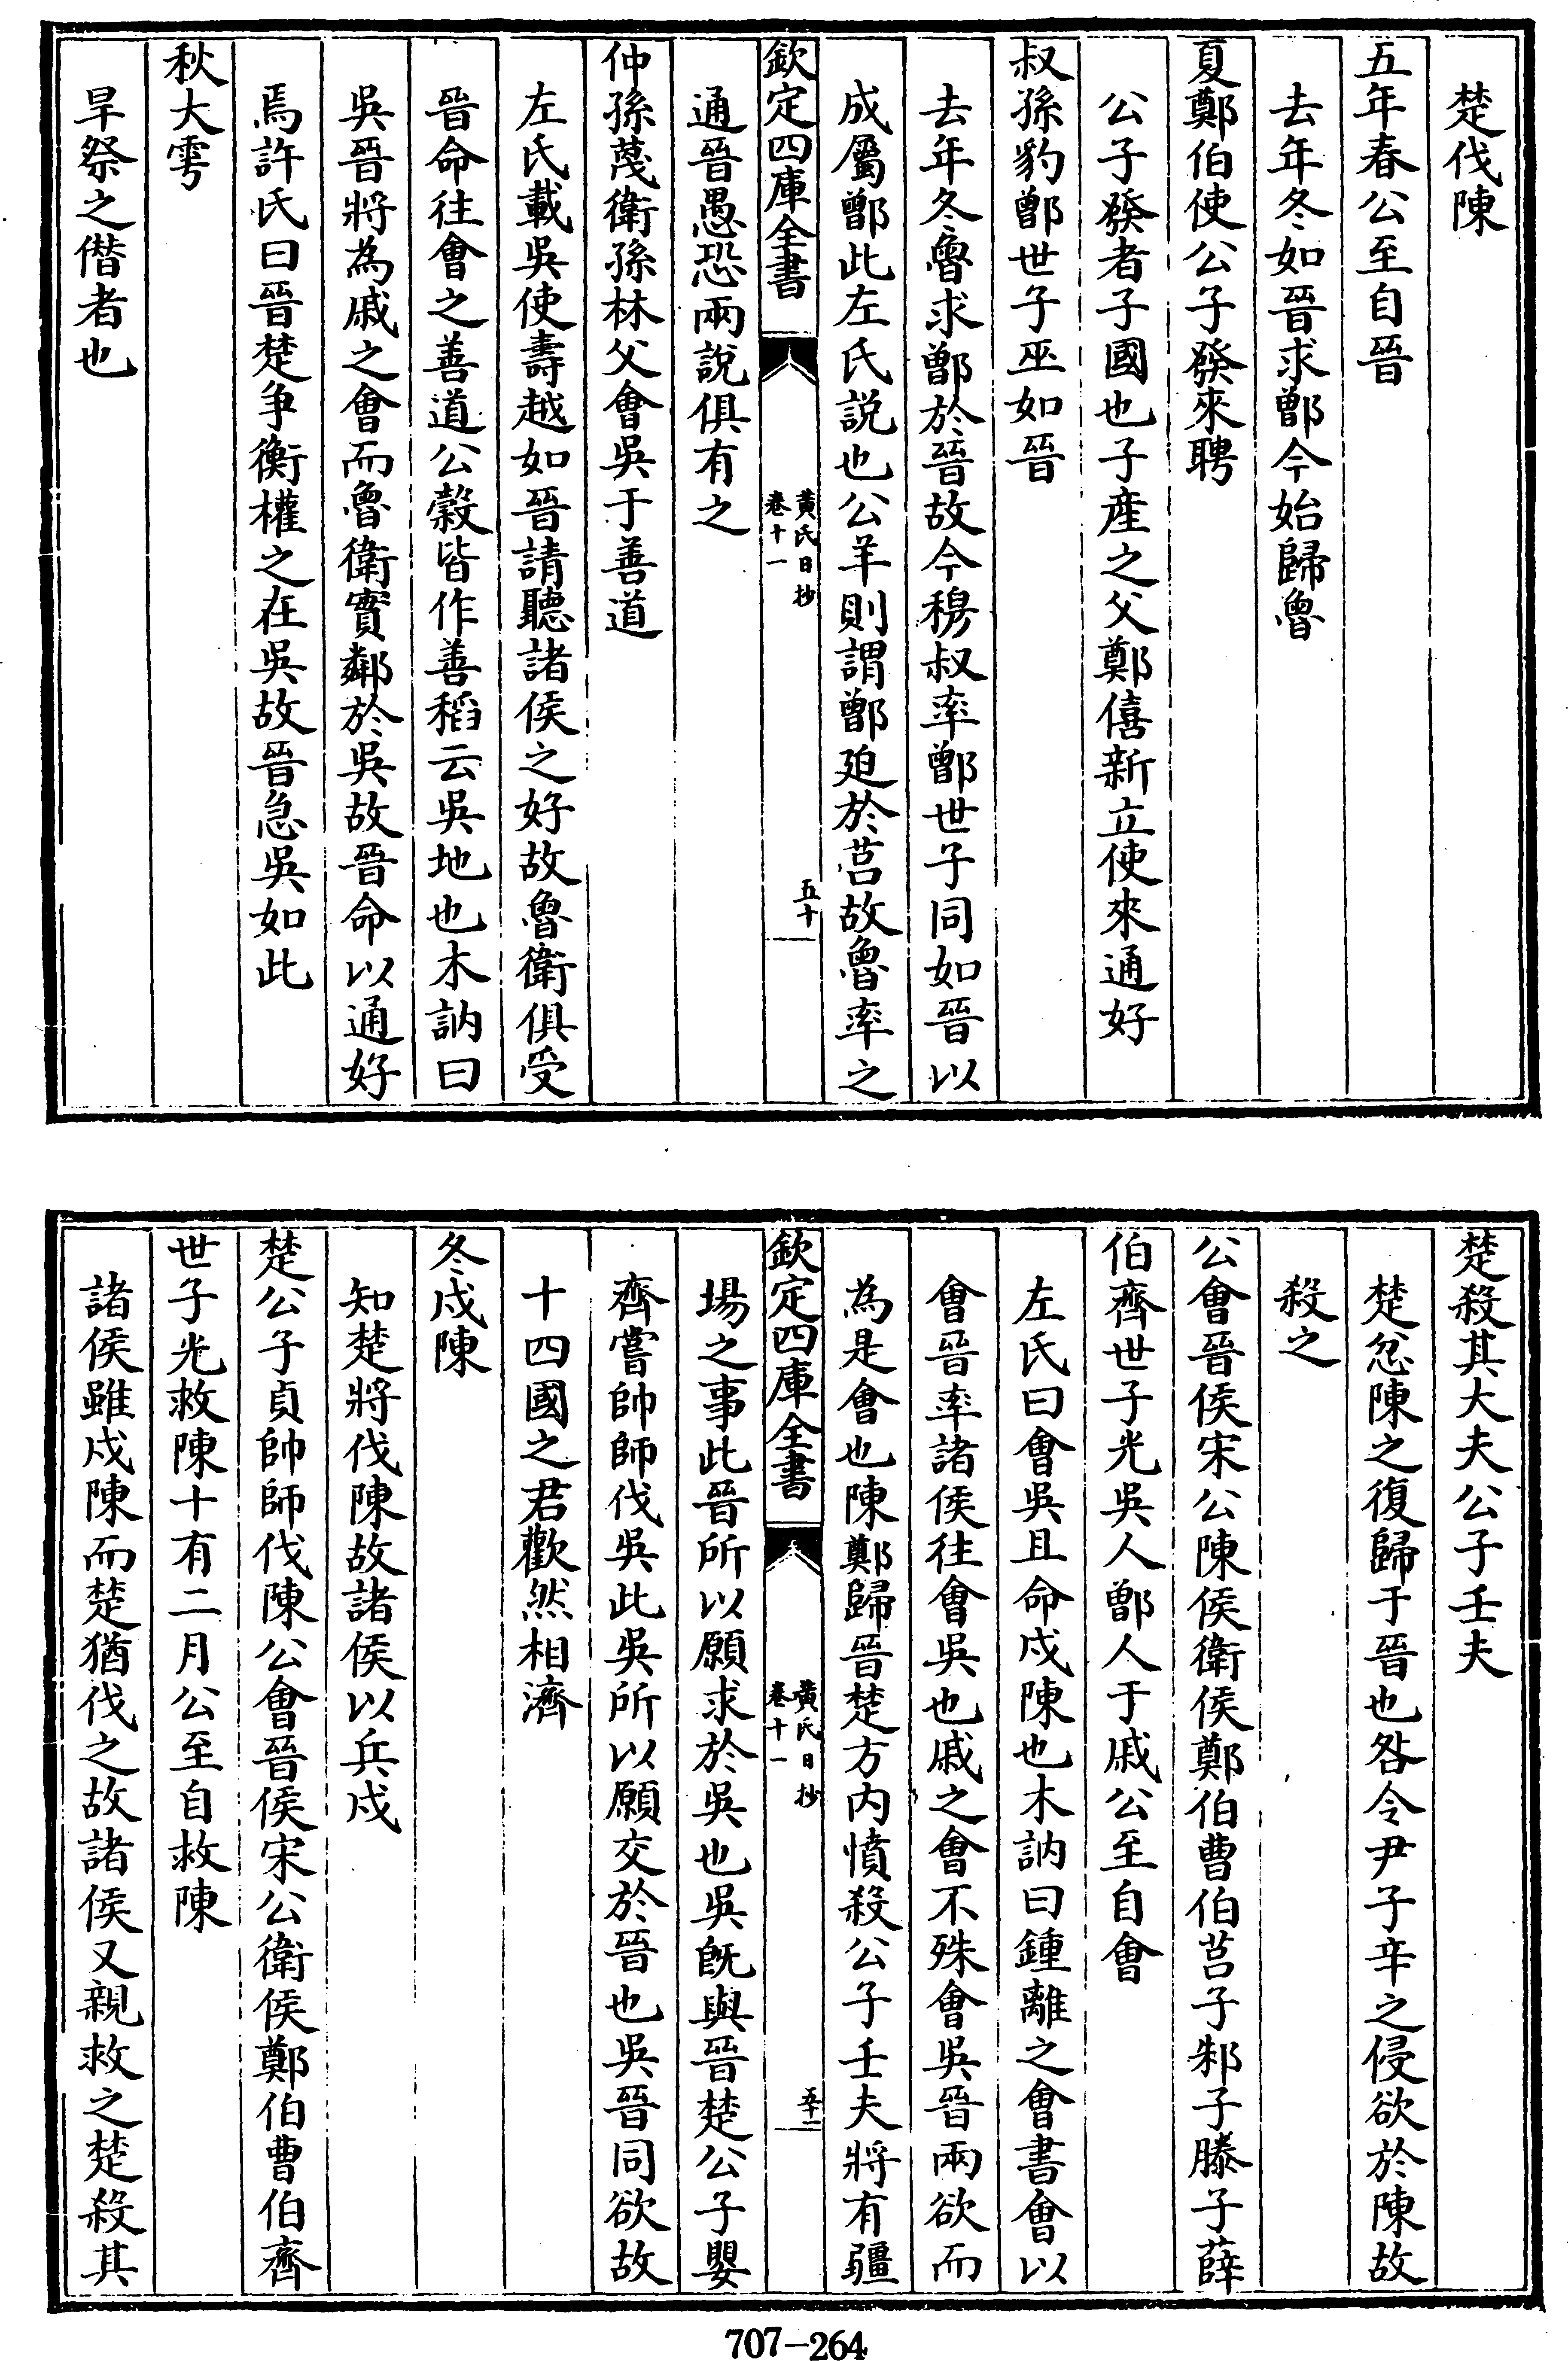 楚伐陳
五年春公至自晉
去年冬如晉求鄫今始歸魯
夏鄭伯使公子發來聘
公子發者子國也子產之父鄭僖新立使來通好
叔孫豹鄫世子巫如晉
去年冬魯求鄫於晉故今穆叔率鄫世子同如晉以
成屬鄫此左氏説也公羊則謂鄫廹於莒故魯率之
欽定四庫全書
黃氏日抄
卷十一
五十
通晉愚恐兩說俱有之
仲孫蔑衛孫林父會吳于善道
左氏載吳使壽越如晉請聽諸侯之好故魯衛俱受
晉命往會之善道公穀皆作善稻云吳地也木訥曰
吳晉將為戚之會而魯衛實鄰於吳故晉命以通好
焉許氏曰晉楚争衡權之在吳故晉急吳如此
秋大雩
旱祭之僭者也
楚殺其大夫公子壬夫
楚忿陳之復歸于晉也咎令尹子辛之侵欲於陳故
殺之
公會晉侯宋公陳侯衛侯鄭伯曹伯莒子邾子滕子薛
伯齊世子光吳人鄫人于戚公至自會
左氏曰會吳且命戍陳也木訥曰鍾離之會書會以
會晉率諸侯往會吳也戚之會不殊會吳晉兩欲而
為是會也陳鄭歸晉楚方内憤殺公子壬夫將有疆
欽定四庫全書
黃氏日抄
卷十一
五十一
場之事此晉所以願求於吳也吳既與晉楚公子嬰
齊嘗帥師伐吳此吳所以願交於晉也吳晉同欲故
十四國之君歡然相濟
冬戍陳
知楚將伐陳故諸侯以兵戍
楚公子貞帥師伐陳公會晉侯宋公衛侯鄭伯曹伯齊
世子光救陳十有二月公至自救陳
諸侯雖戍陳而楚猶伐之故諸侯又親救之楚殺其
707-264